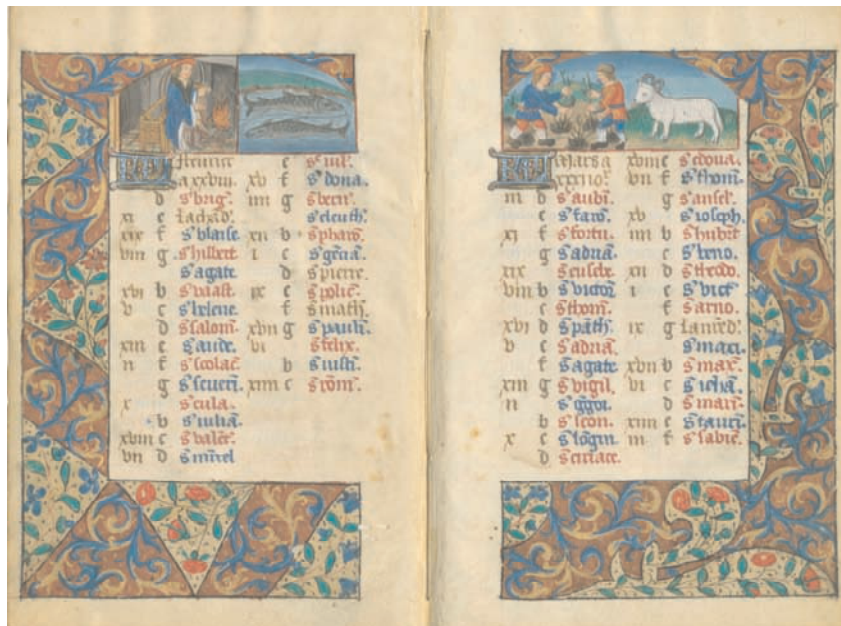 feurier
a xxviii.
d s' brig.
xi e
xix f s' blaise
viii g s' hilbert
s' agate
xvi b s' vaast.
v c s' helene.
d s' salom.
xiii e s' aude.
ii f s' scolac.
g s' seueri.
x s' eula.
b s' iuliā.
xviii c s' valer.
vii d
e s' iul.
xv f s' dona.
iiii g
s' eleuth.
xii b s' pharo.
i c
d s' pierre.
ix e s' polic.
f s' math.
xvii g s' pauli.
vi s' felix.
b s' iusti.
xiiii c s' rom.
Mars a
xxxi io'.
iii d s' aubi.
e s' faro.
xi f s' fortu.
g s' adriā.
xix s' eusebe
viii b s' victor
c s' thom.
xvi d s' path.
v e s' adriā.
f s' agate
xiii g s' vigil.
ii s' ggoi.
b s' leon.
x c s' login.
d s' ciriace.
xviii e s' edoua.
vii f s' thom.
g s' ansel.
xv s' ioseph.
iiii b s' hubert
c s' beno.
xii d s' theodo.
i e s' vict
f s' arno.
ix g
s' maxi.
xvii b s' max.
vi c s' iehā.
d s' mari.
xiiii e
iii f s' sabie.